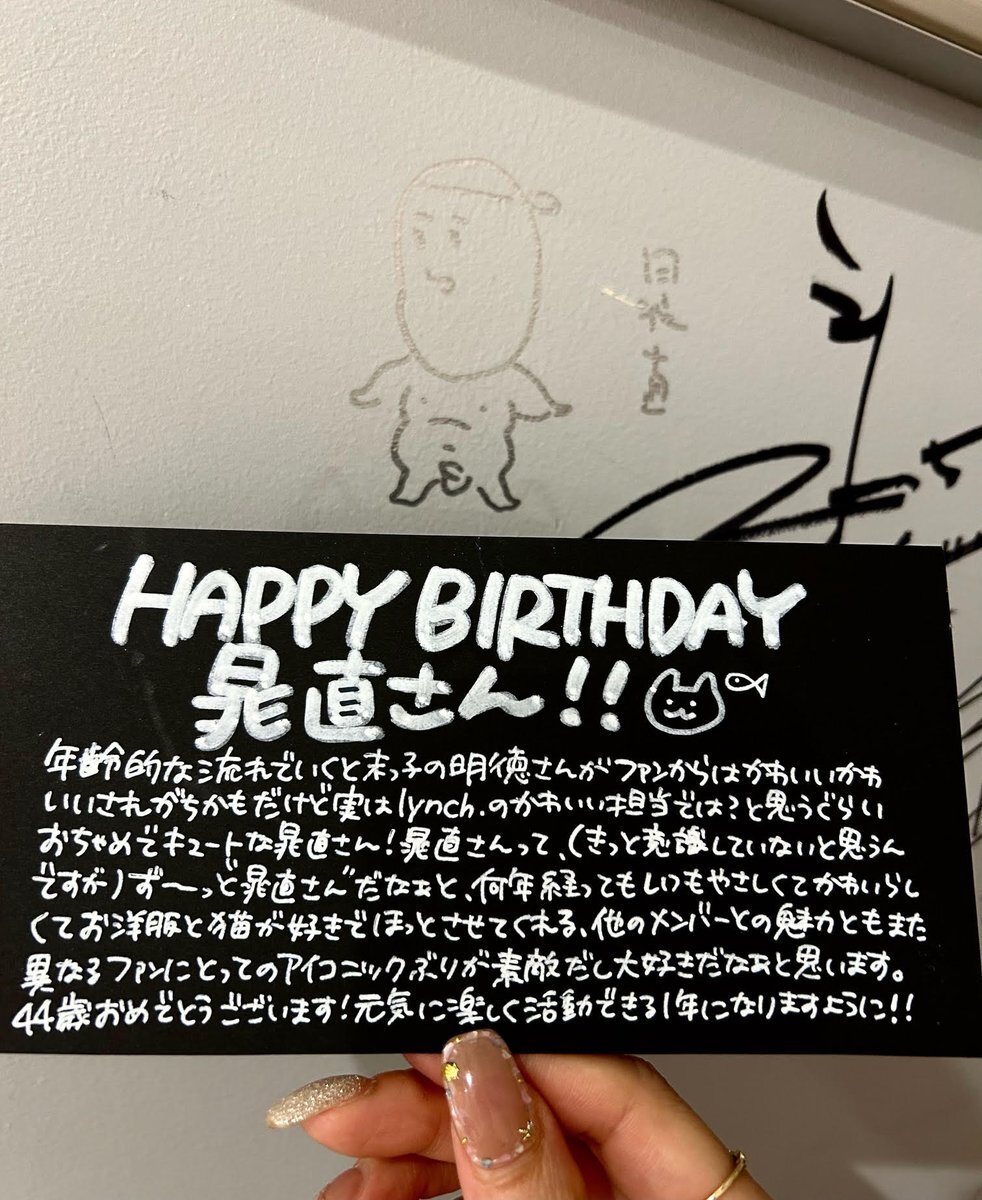 HAPPY BIRTHDAY
晁直さん!!
年齢的な流れでいくと末っ子の明徳さんがファンからはかわいいかわ
いいされがちかもだけど実はlynch.のかわいい担当では?と思うぐらい
おちゃめでキュートな晁直さん!晁直さんって、(きっと意識していないと思うん
ですが)ず〜っど晁直さん"だなぁと、何年経ってもいつもやさしくてかわいらし
くてお洋服と猫が好きでほっとさせてくれる、他のメンバーとの魅力ともまた
異なるファンにとってのアイコニックぶりが素敵だし大好きだなぁと思います。
44歳おめでとうございます!元気に楽しく活動できる1年になりますように!!